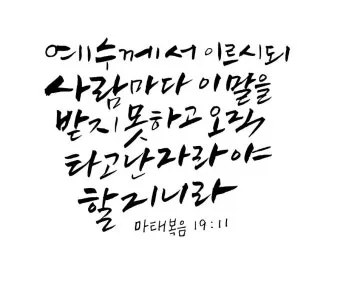 예수께서 이르시되
사람마다 이말을
받지 못하고 오직
타고난 자라야
할지니라
마태복음 19:11